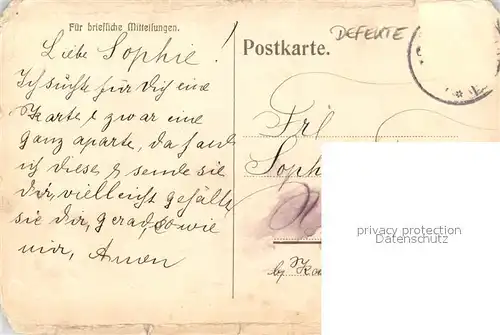 Für briefliche Mitteilungen.
Liebe Sophie!
Ich suchte für Dich eine
Karte & zwar eine
ganz aparte, da fand
ich diese, & sende sie
Dir, vielleicht gefällt
sie Dir, gerad so wie
mir, Amen
DEFEKTE
Postkarte.
Frl
Soph
by
privacy protection
Datenschutz